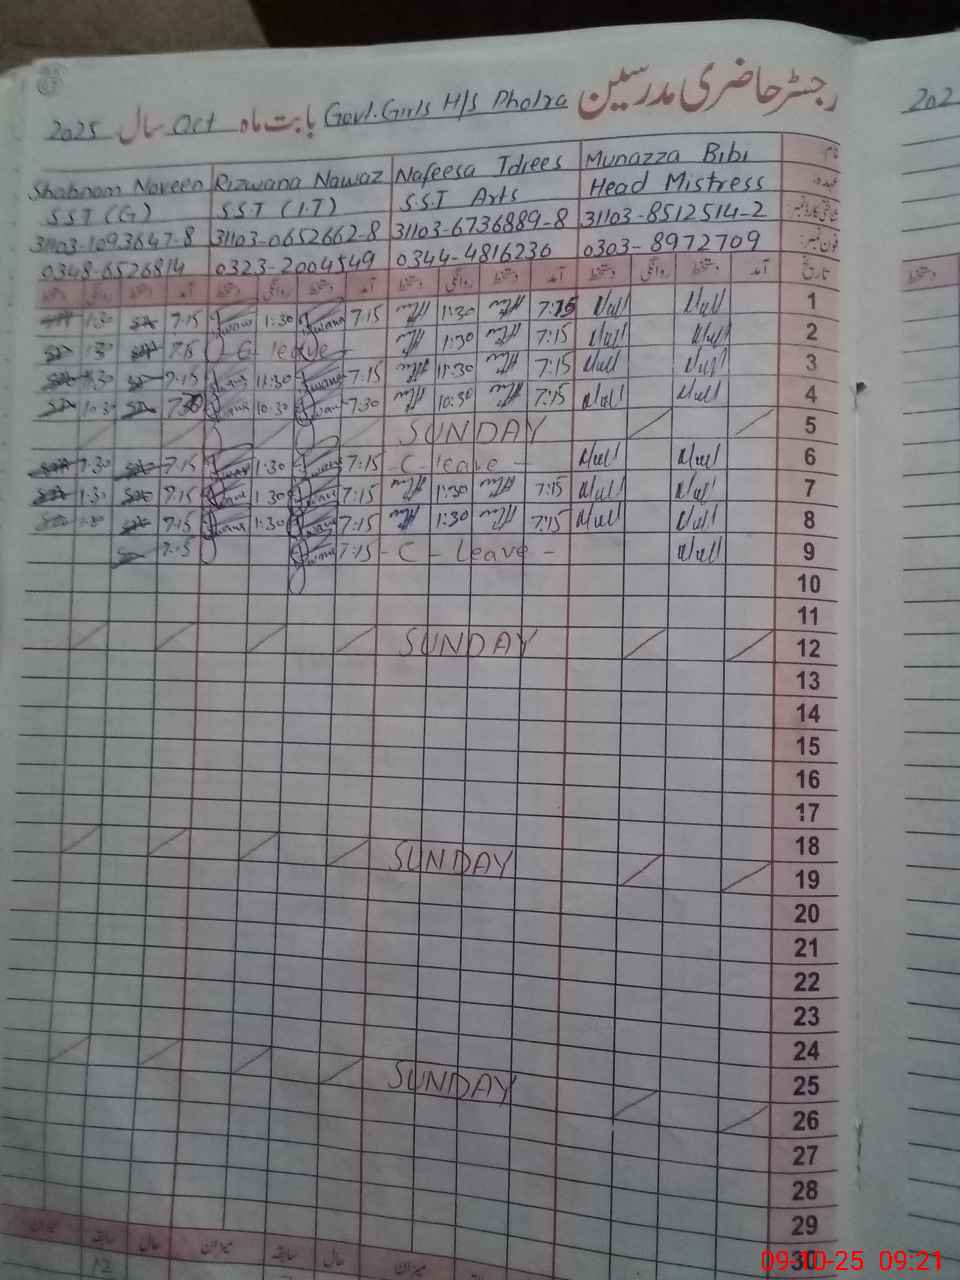 رجسٹر حاضری مدرسین Govt. Girls H/S Pholra بابت ماہ Oct سال 2025
202
نام Munazza Bibi Nafeesa Idrees Rizwana Nawaz Shabnam Naveen
عہدہ Head Mistress S.S.T Arts S.S.T (I.T) S.S.T (G)
31103-8512514-2 31103-6736889-8 31103-0652662-8 31103-1093647-8
فون نمبر 0303-8972709 0344-4816230 0323-2004549 0348-6526814
تاریخ آمد دستخط روانگی دستخط آمد دستخط روانگی دستخط آمد دستخط روانگی دستخط آمد دستخط روانگی دستخط
1 7:15 1:30 7:15 1:30 7:15 1:30
2 7:15 1:30 C- leave - 7:15 1:30
3 7:15 11:30 7:15 11:30 7:15
4 7:15 10:30 7:30 10:30 10:30
5 SUNDAY
6 - C - leave - 7:15 1:30 7:15 1:30
7 7:15 1:30 7:15 1:30 7:15 1:30
8 7:15 1:30 7:15 1:30 7:15 1:30
9 - C - Leave - 7:15 7:15
10
11
12 SUNDAY
13
14
15
16
17
18
SUNDAY
19
20
21
22
23
24
25 SUNDAY
26
27
28
29
30
میزان حال سابقہ میزان حال سابقہ میزان
12
09-10-25 09:21